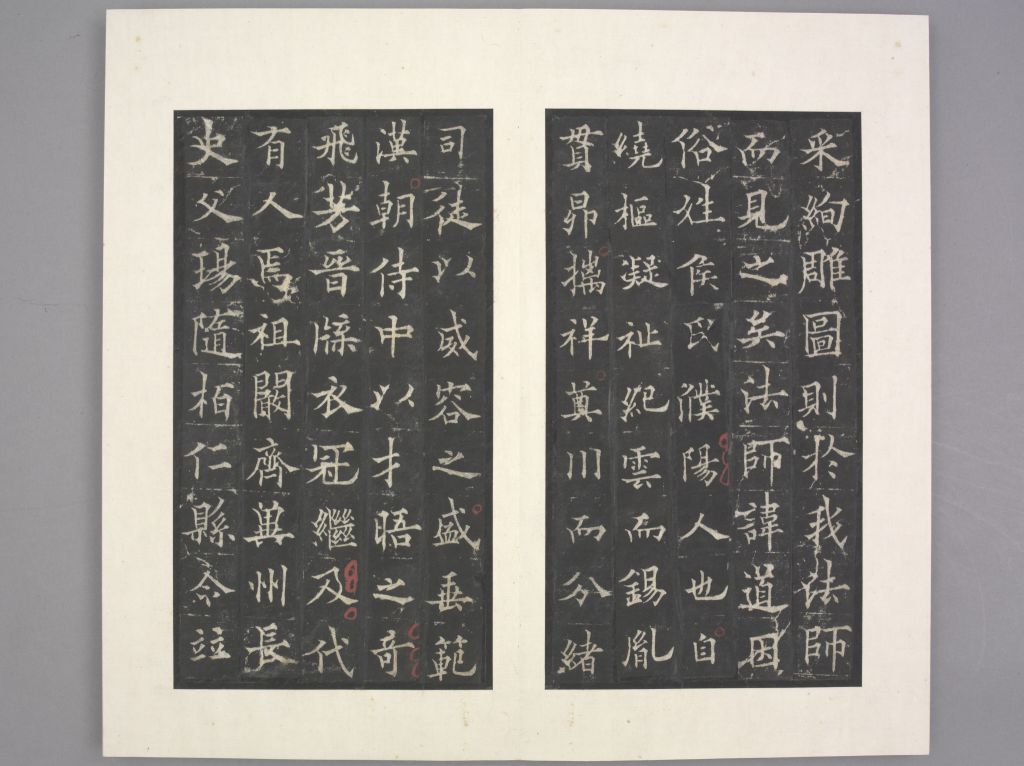 采絢雕圖則於我法師
而見之矣法師諱道因
俗姓侯氏濮陽人也自
繞樞凝祉紀雲而錫胤
貫昴摛祥奠川而分緒
司徒以威容之盛垂範
漢朝侍中以才晤之奇
飛芳晉牒衣冠繼及代
有人焉祖闞齊冀州長
史父瑒隨柏仁縣令竝